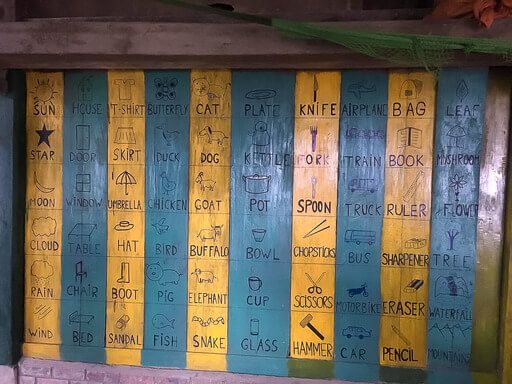 SUN HOUSE T-SHIRT BUTTERFLY CAT PLATE KNIFE AIRPLANE BAG LEAF
STAR DOOR SKIRT DUCK DOG KETTLE FORK TRAIN BOOK MUSHROOM
MOON WINDOW UMBRELLA CHICKEN GOAT POT SPOON TRUCK RULER FLOWER
CLOUD TABLE HAT BIRD BUFFALO BOWL CHOPSTICKS BUS SHARPENER TREE
RAIN CHAIR BOOT PIG ELEPHANT CUP SCISSORS MOTORBIKE ERASER WATERFALL
WIND BED SANDAL FISH SNAKE GLASS HAMMER CAR PENCIL